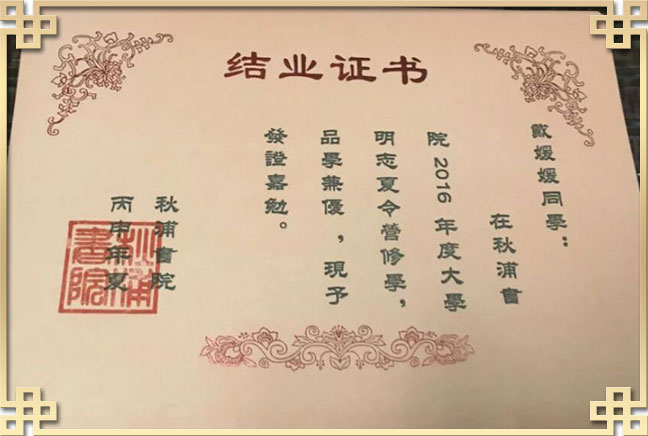 结业证书
歐媛媛同學：
在秋浦書
院2016年度大學
明志夏令營修學，
品學兼優，現予
發證嘉勉。
秋浦書院
丙申年夏
秋浦書院